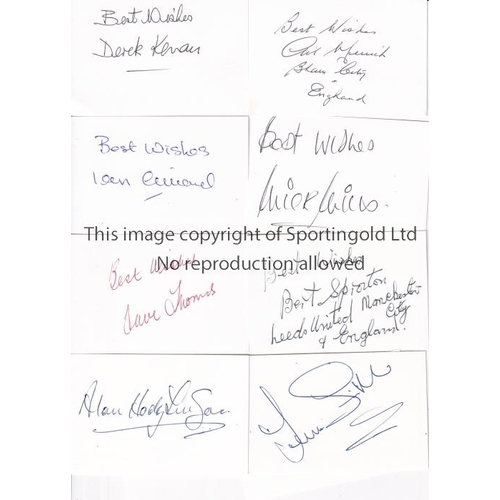 Best Wishes
Derek Kevan
Best Wishes
B'ham City
England
Best Wishes
Best Wishes
Mick Mills.
This image copyright of Sportingold Ltd
No reproduction allowed
Best Wishes
Dave Thomas
Best Wishes
Bert Sproston
Leeds United Manchester
City
& England.
Alan Hodgkinson